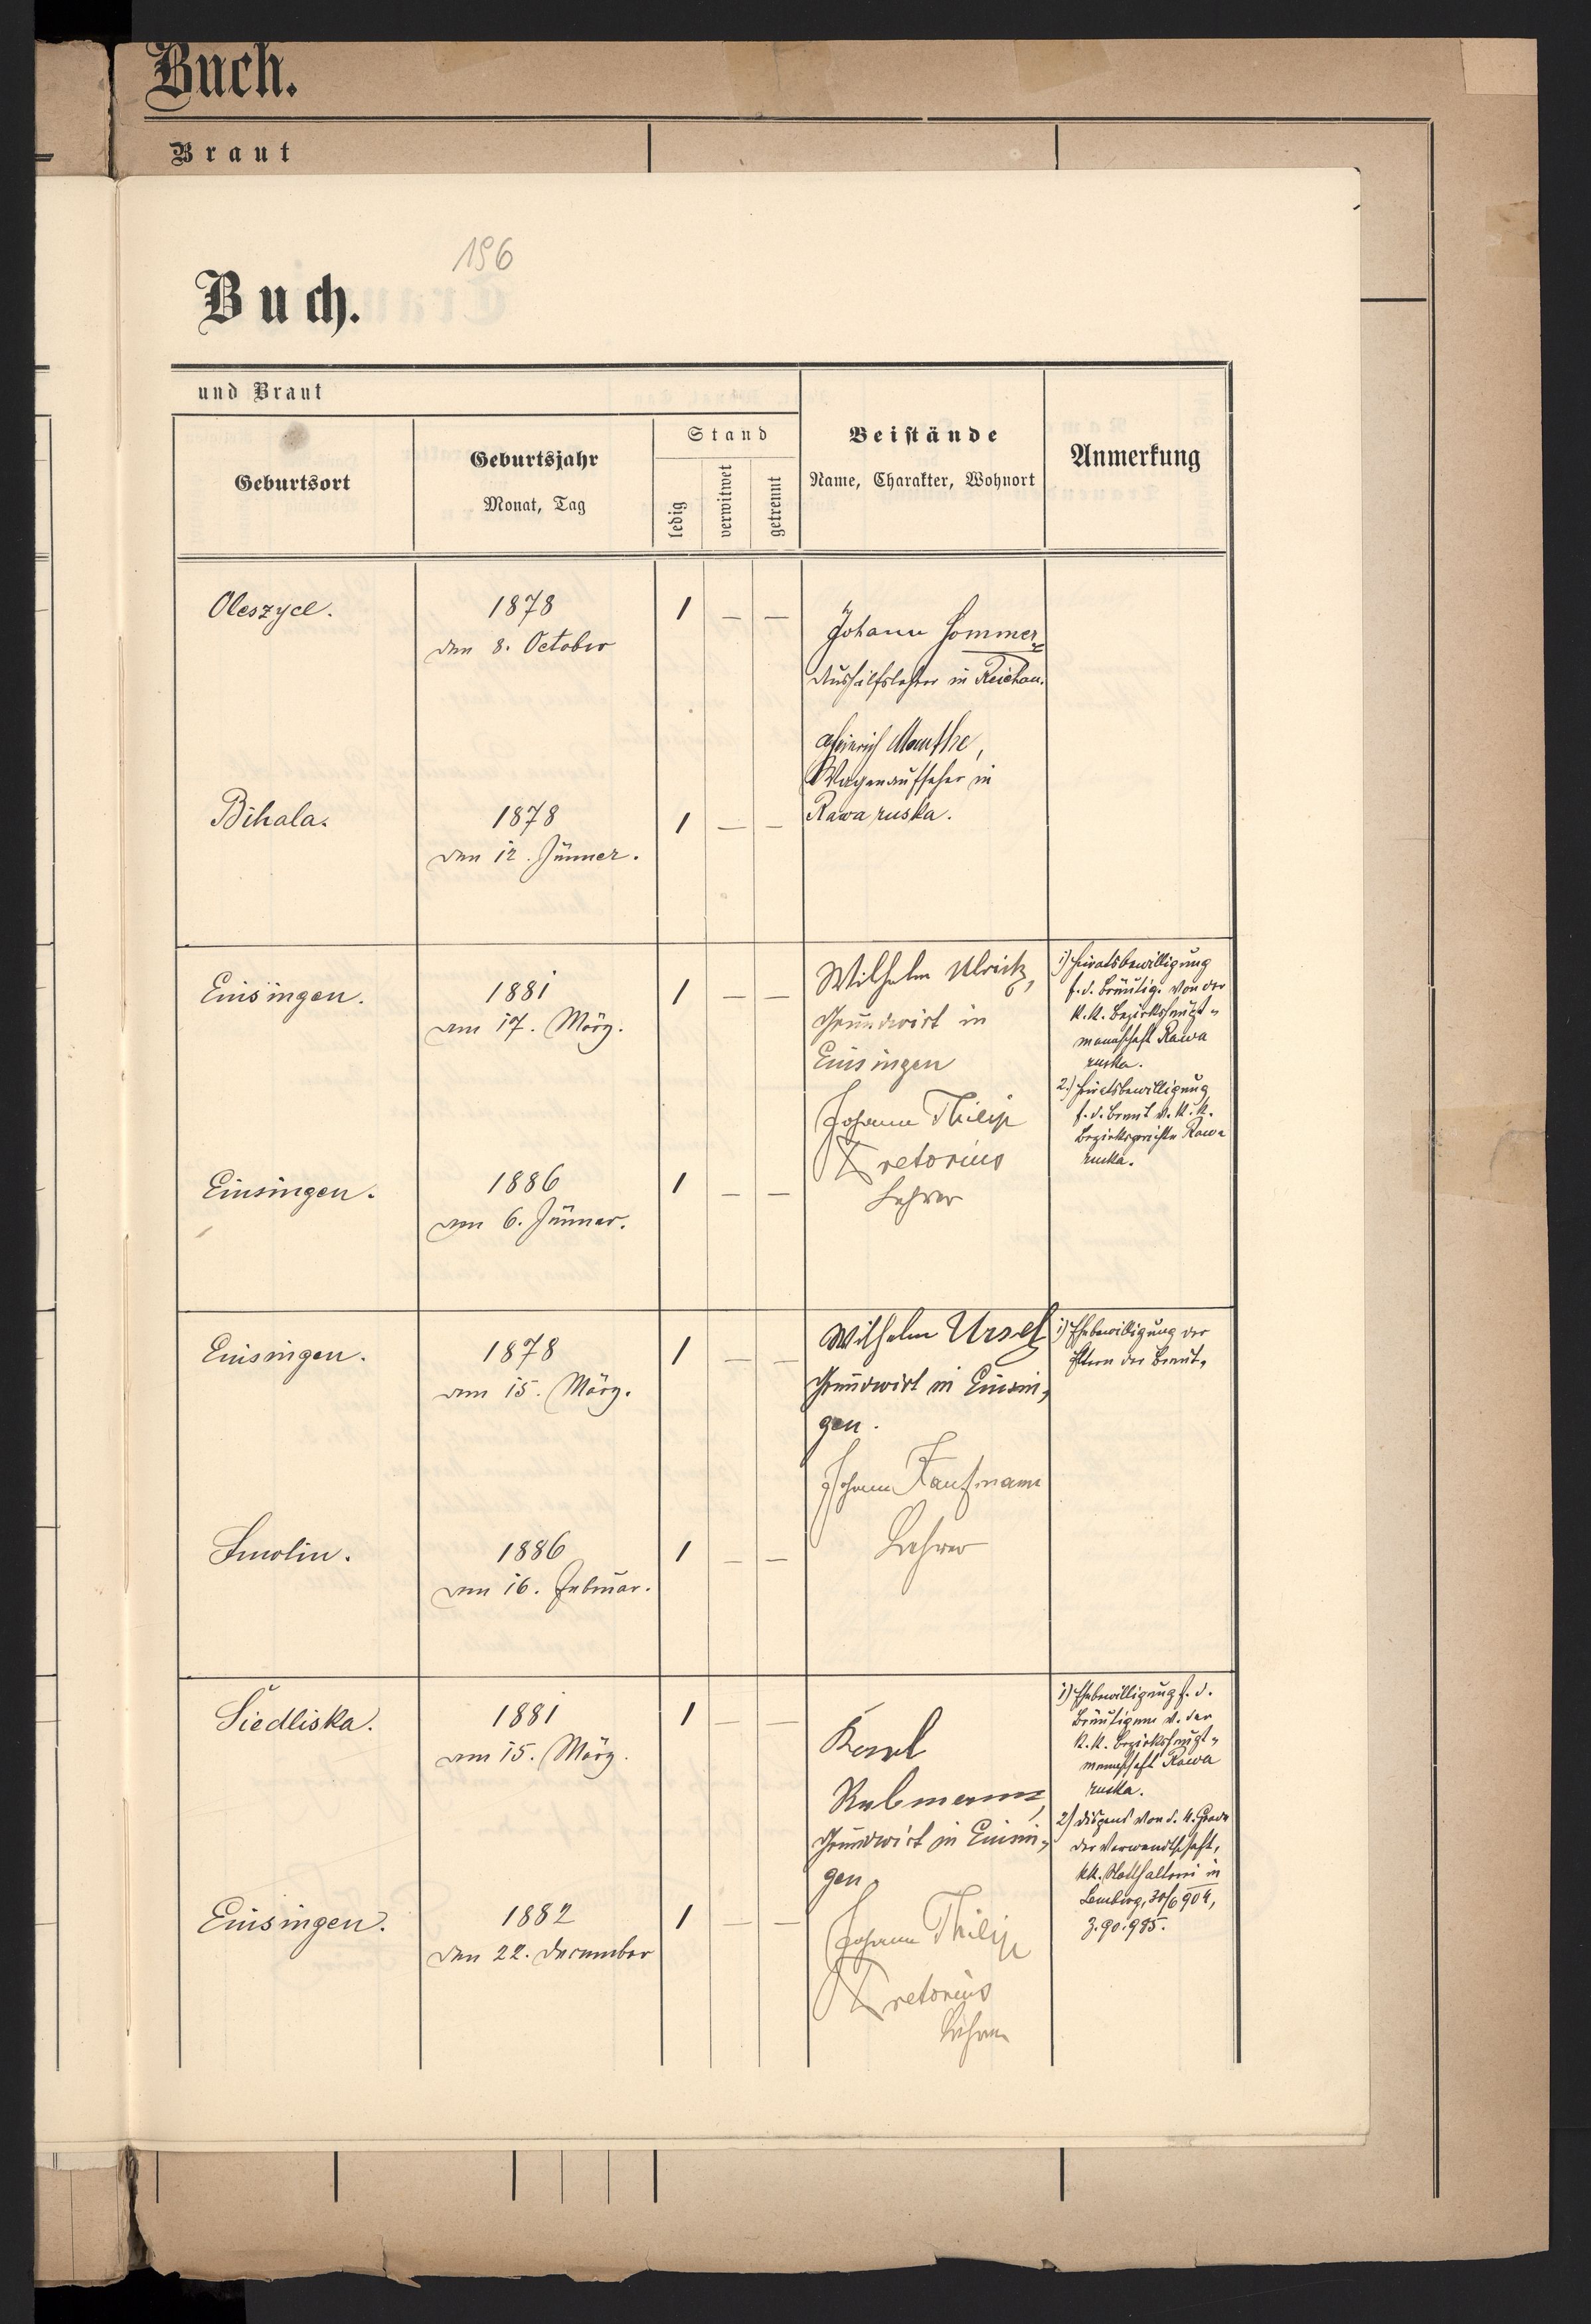 Buch.
Braut
196
Buch.
und Braut
Geburtsort
Geburtsjahr
Monat, Tag
Stand
ledig
verwitwet
getrennt
Beistände
Name, Charakter, Wohnort
Anmerkung
Oleszyce.
1878
den 8. October
1 — —
Johann Sommer
Aushilfslehrer in Reichau.
Heinrich Manthe,
Wagenaufseher in
Rawa ruska.
Bihala.
1878
den 12. Jänner.
1 — —
Einsingen.
1881
am 17. März.
1 — —
Wilhelm Ulrich,
Grundwirt in
Einsingen
Johann Philip
Pretorius
Lehrer
1) Heiratsbewilligung
f. d. Bräutig. von der
k. k. Bezirkshaupt-
mannschaft Rawa
ruska.
2.) Heiratsbewilligung
f. d. Braut v. k. k.
Bezirksgerichte Rawa
ruska.
Einsingen.
1886
am 6. Jänner.
1 — —
Einsingen.
1878
am 15. März.
1 — —
Wilhelm Ursel
Grundwirt in Einsin-
gen.
Johann Kaufmann
Lehrer
1) Ehebewilligung der
Eltern der Braut.
Smolin.
1886
am 16. Februar.
1 — —
Siedliska.
1881
am 15. März.
1 — —
Karl
Rubmann,
Grundwirt in Einsin-
gen
Johann Philip
Pretorius
Lehrer
1) Ehebewilligung f. d.
Bräutigam v. der
k. k. Bezirkshaupt-
mannschaft Rawa
ruska.
2) Dispens von d. 4. Grade
der Verwandtschaft,
kk. Statthalterei in
Lemberg, 30/6 904,
Z. 90.985.
Einsingen.
1882
den 22. December
1 — —